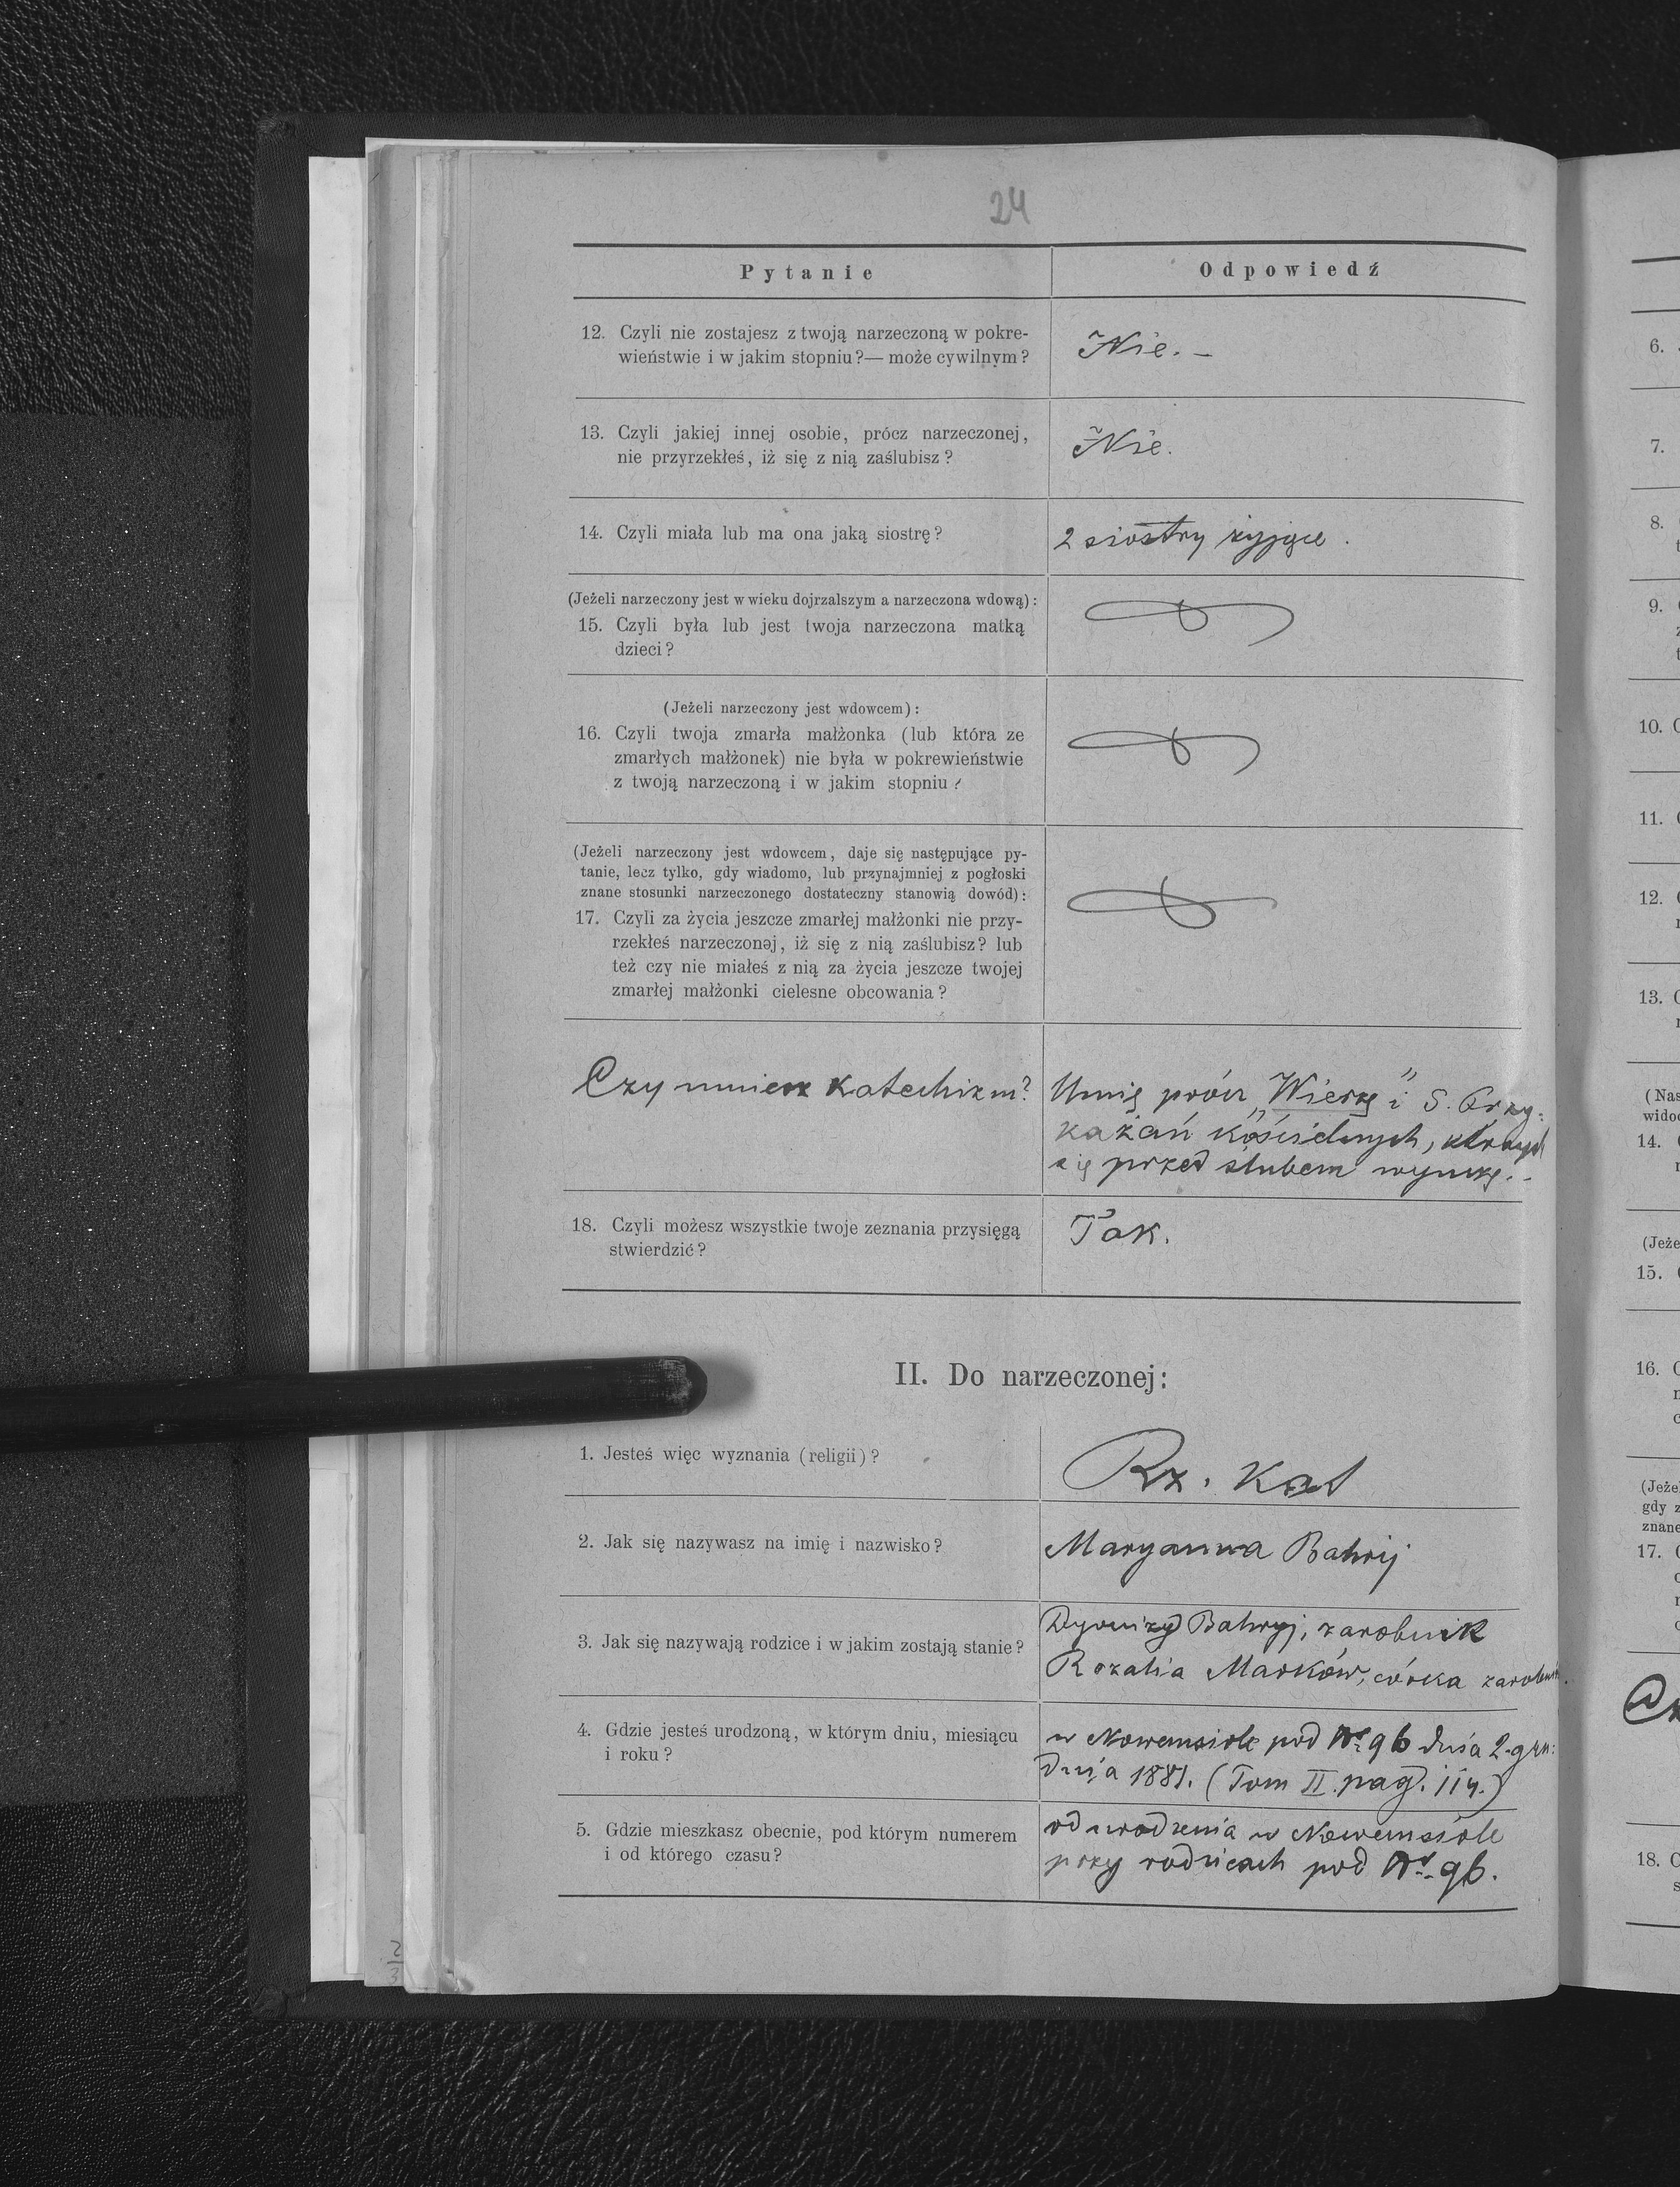 24
Pytanie
Odpowiedź
12. Czyli nie zostajesz z twoją narzeczoną w pokre-
wieństwie i w jakim stopniu?— może cywilnym?
Nie. -
13. Czyli jakiej innej osobie, prócz narzeczonej,
nie przyrzekłeś, iż się z nią zaślubisz?
Nie.
14. Czyli miała lub ma ona jaką siostrę?
2 siostry żyjące.
(Jeżeli narzeczony jest w wieku dojrzalszym a narzeczona wdową):
15. Czyli była lub jest twoja narzeczona matką
dzieci?
(Jeżeli narzeczony jest wdowcem):
16. Czyli twoja zmarła małżonka (lub która ze
zmarłych małżonek) nie była w pokrewieństwie
z twoją narzeczoną i w jakim stopniu?
(Jeżeli narzeczony jest wdowcem, daje się następujące py-
tanie, lecz tylko, gdy wiadomo, lub przynajmniej z pogłoski
znane stosunki narzeczonego dostateczny stanowią dowód):
17. Czyli za życia jeszcze zmarłej małżonki nie przy-
rzekłeś narzeczonej, iż się z nią zaślubisz? lub
też czy nie miałeś z nią za życia jeszcze twojej
zmarłej małżonki cielesne obcowania?
Czy umiesz Katechizm?
Umię prócz "Wierzę" i 5. Przy:
kazań kościelnych, których
się przed ślubem wyuczę. -
18. Czyli możesz wszystkie twoje zeznania przysięgą
stwierdzić?
Tak.
II. Do narzeczonej:
1. Jesteś więc wyznania (religii)?
Rz. Kat
2. Jak się nazywasz na imię i nazwisko?
Maryanna Bahrij
3. Jak się nazywają rodzice i w jakim zostają stanie?
Dyonizy Bahryj, zarobnik
Rozalia Marków, córka zarobnik.
4. Gdzie jesteś urodzoną, w którym dniu, miesiącu
i roku?
w Nowemsiole pod Nr 96 dnia 2. gru:
dnia 1881. (Tom II. pag. 114.)
5. Gdzie mieszkasz obecnie, pod którym numerem
i od którego czasu?
od urodzenia w Nowemsiole
przy rodzicach pod Nr. 96.
6.
7.
8.
9.
10.
11.
12.
13.
(Nas
widoc
14.
(Jeże
15.
16.
(Jeże
gdy z
znane
17.
18.